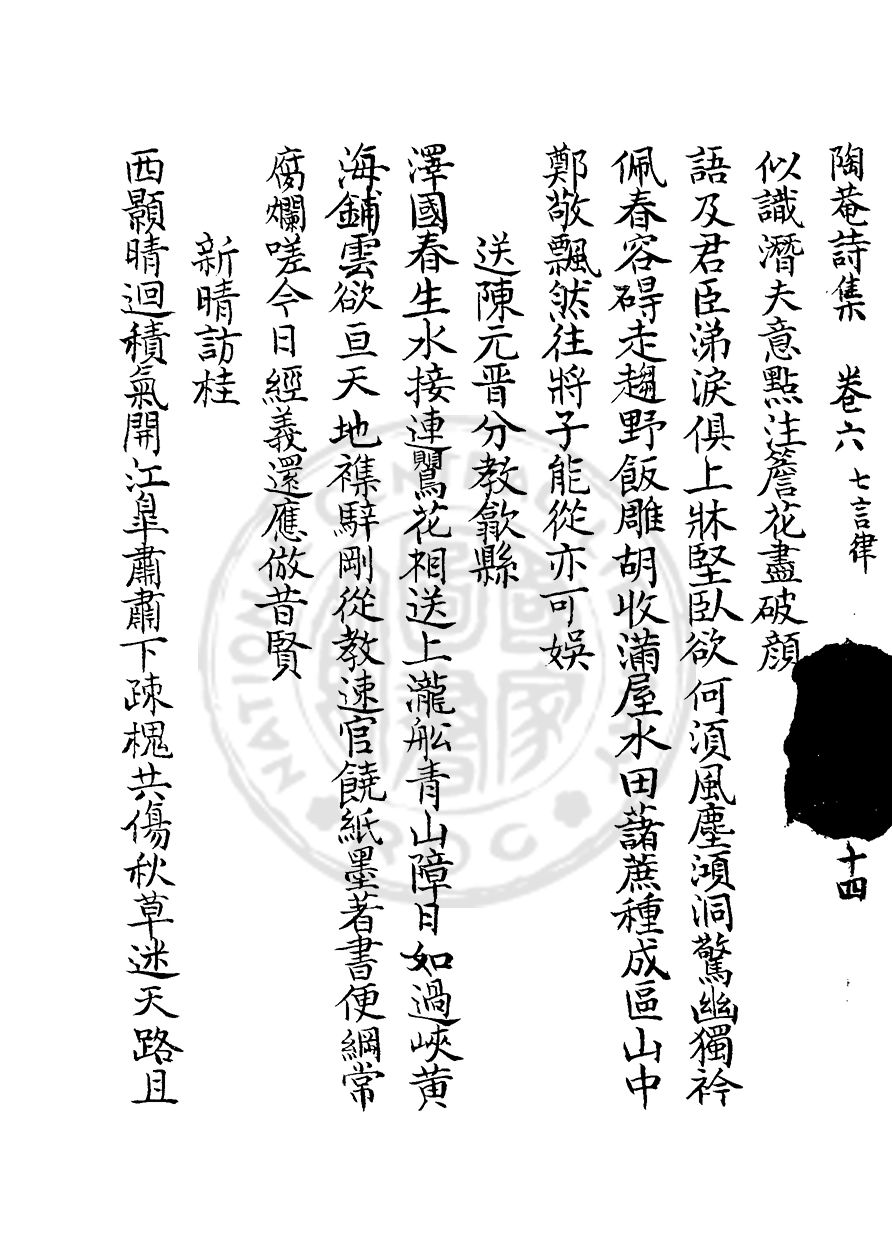 陶菴詩集 卷六 七言律 十四
似識潛夫意點注簷花盡破顔
語及君臣涕淚俱上牀堅臥欲何須風塵澒洞驚幽獨衿
佩春容碍走趨野飯雕胡收滿屋水田藷蔗種成區山中
鄭敬飄然往將子能從亦可娛
送陳元晋分教歙縣
澤國春生水接連鸎花相送上瀧舩青山障日如過峽黄
海鋪雲欲亘天地襍騂剛從教速官饒紙墨著書便綱常
腐爛嗟今日經義還應倣昔賢
新晴訪桂
西顥晴迴積氣開江皐肅肅下疎槐共傷秋草迷天路且
NATIONAL CENTRAL LIBRARY
ROC